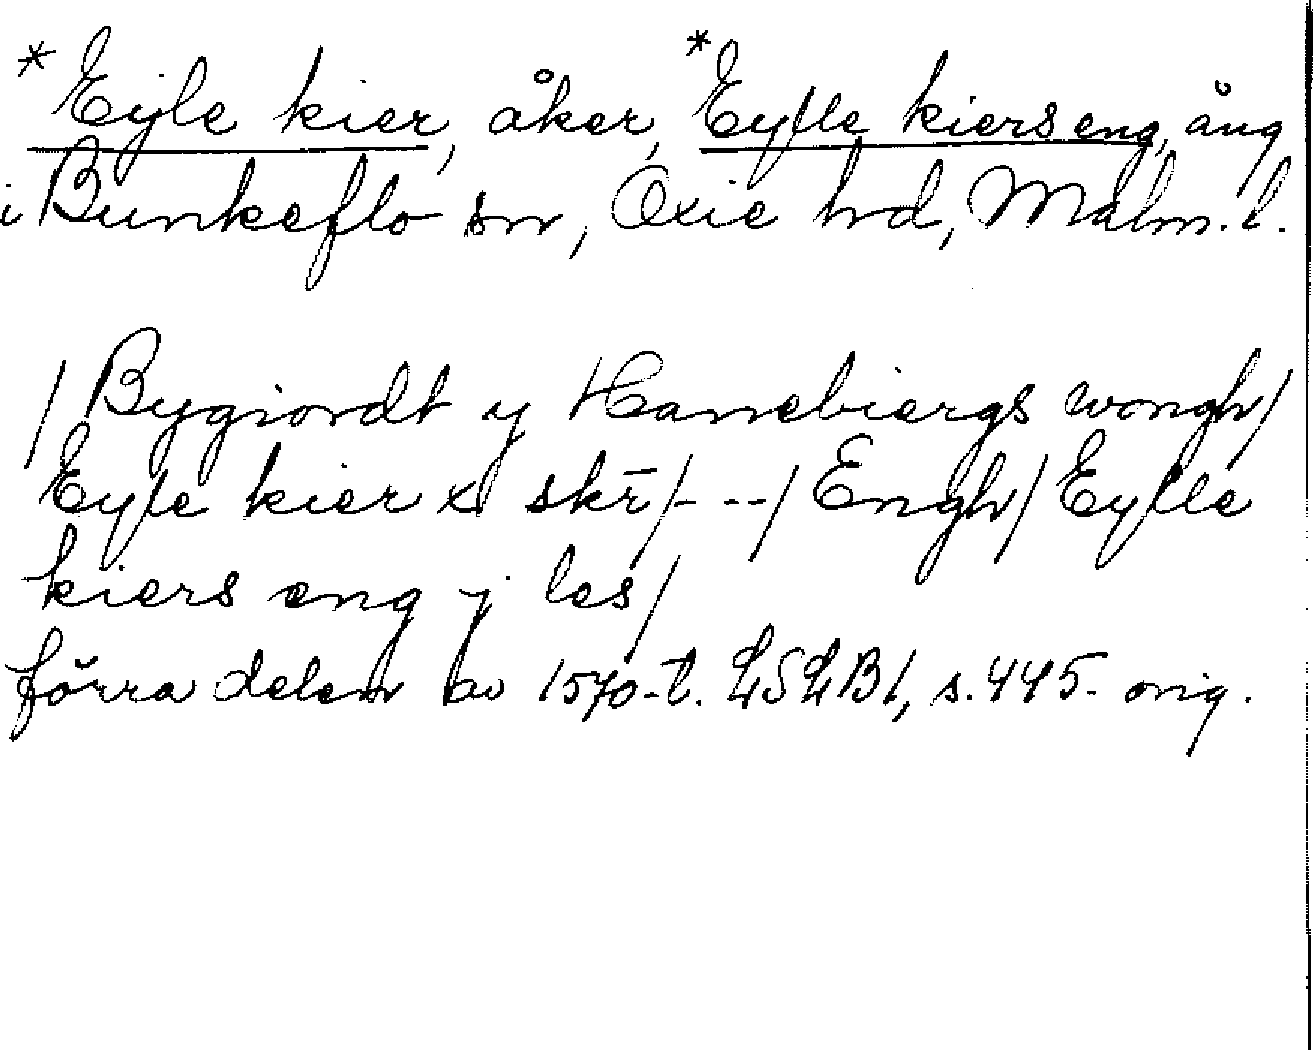 * Eyle kier, åker, * Eylle kiers eng, äng
i Bunkeflo sn, Oxie hd, Malm. l.
/ Bygiordt y Hanebiergs wongh /
Eyle kier x skr̄ / - -- / Engh / Eylle
kiers eng j les /
förra delen av 1570-t. LSLB1, s. 445 orig.